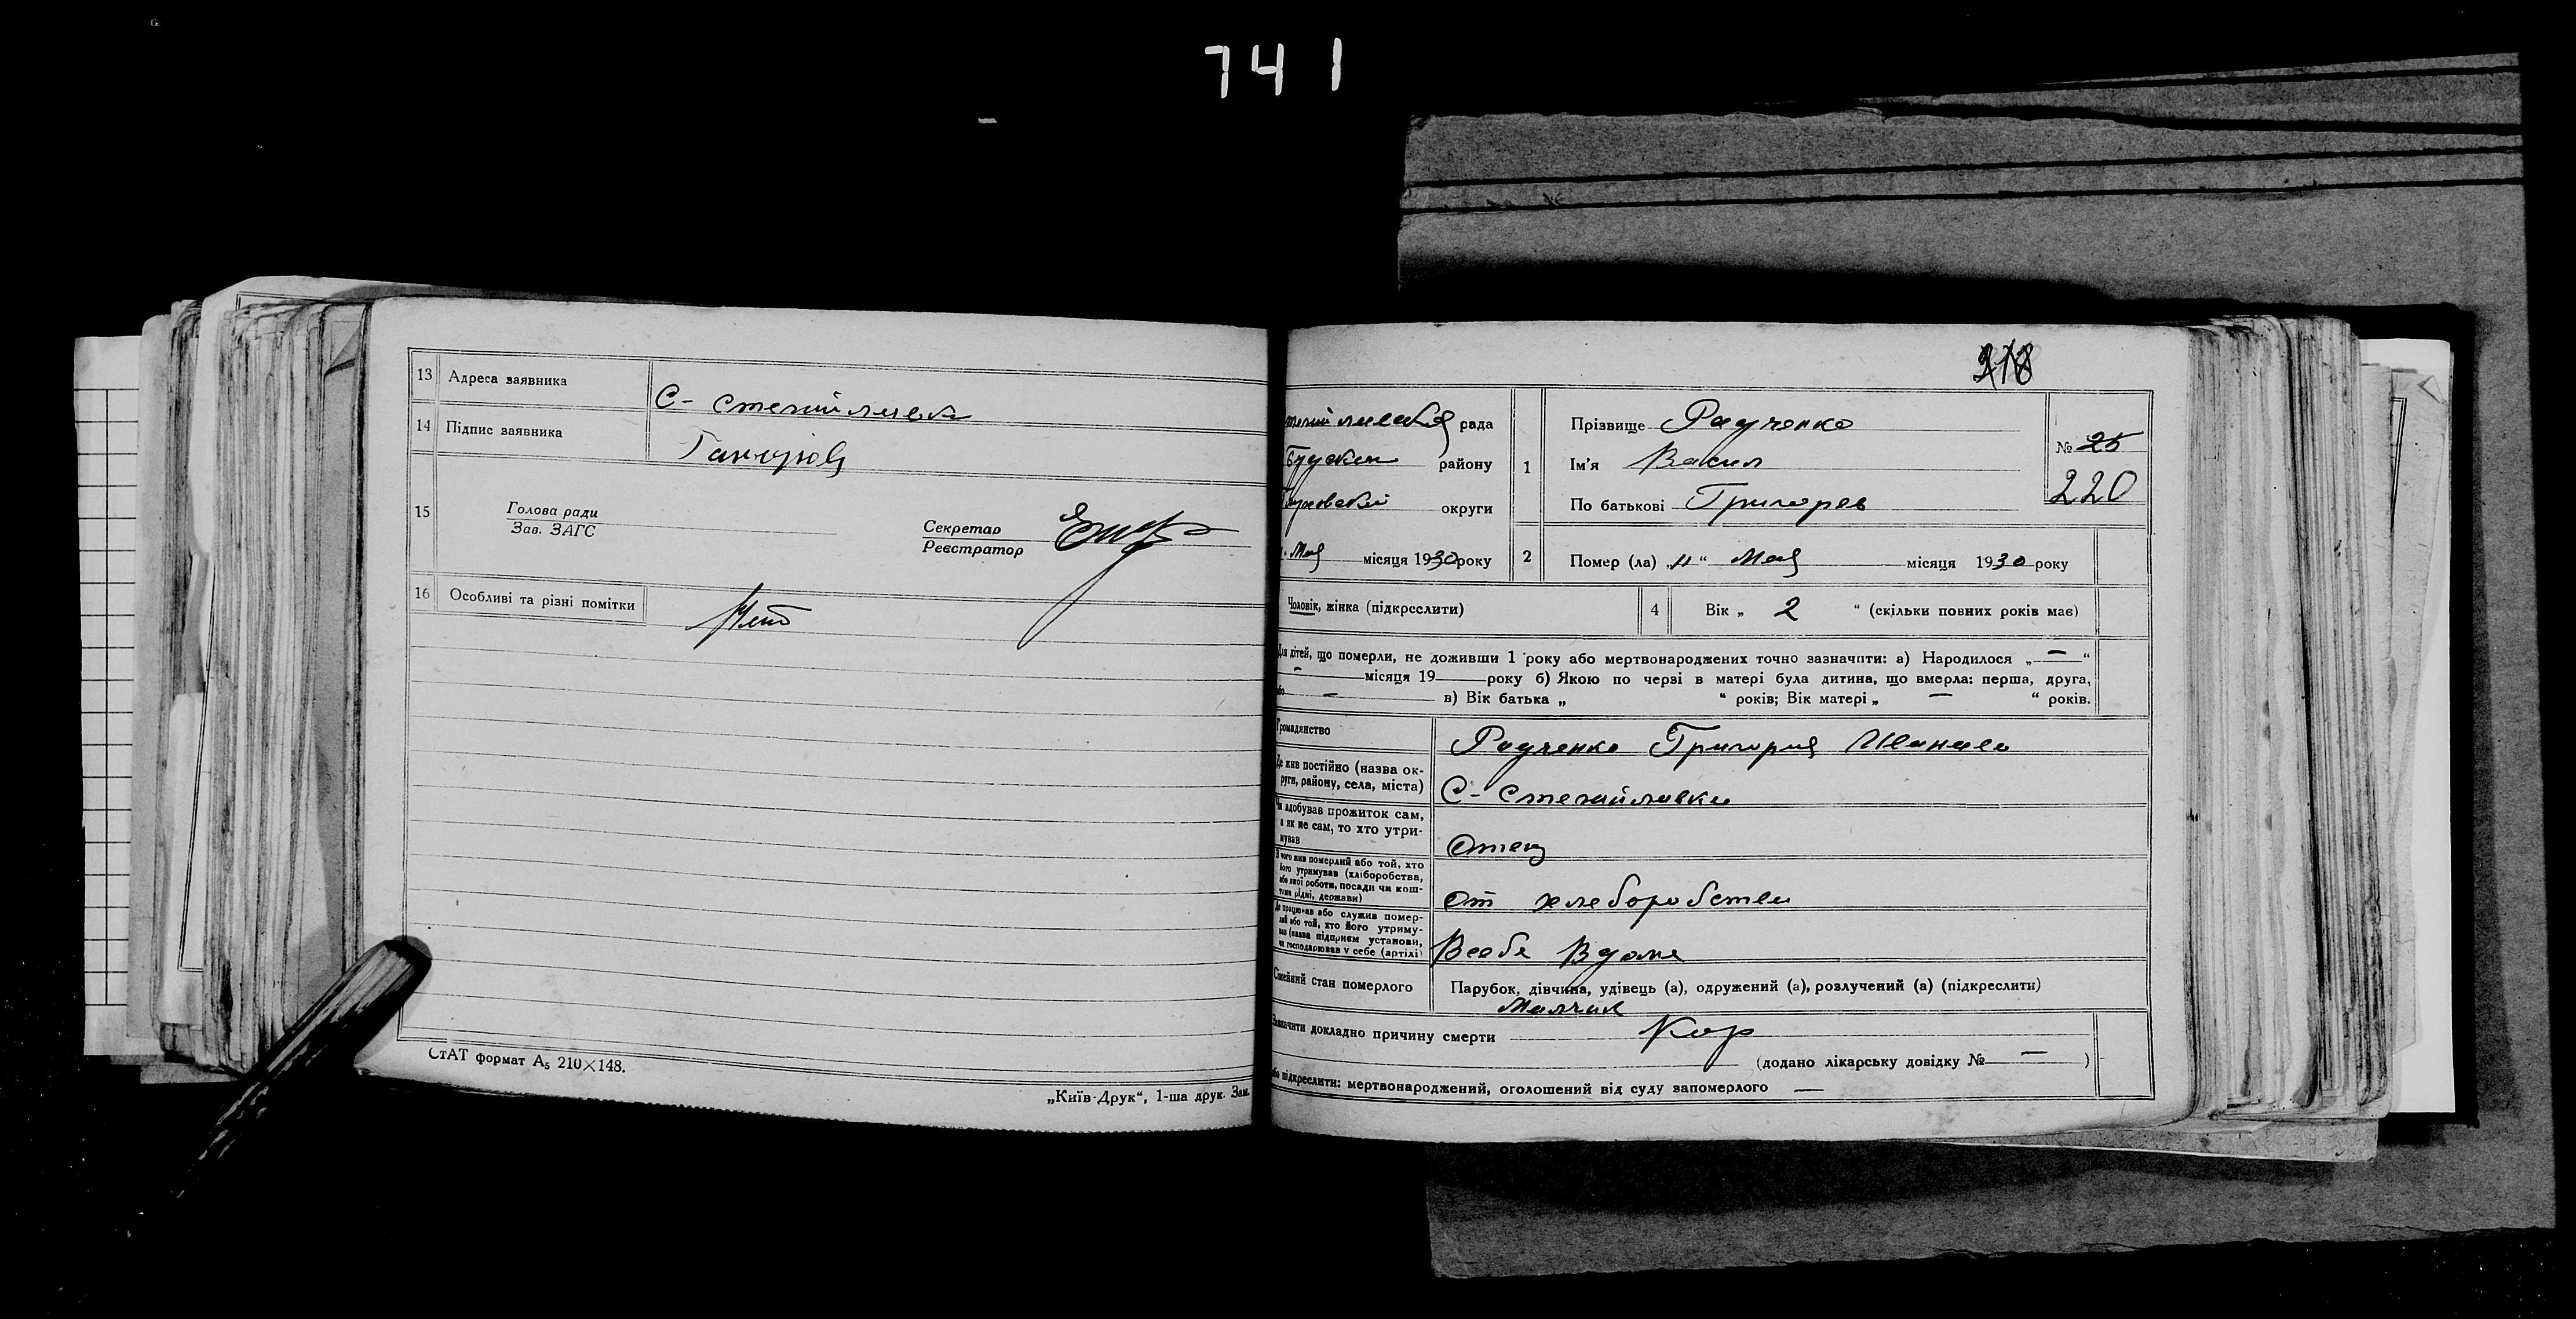 741
13 Адреса заявника С- Степайливка
14 Підпис заявника
15 Голова ради
Зав. ЗАГС
Секретар
Реєстратор
16 Особливі та різні помітки
СтАТ формат А5 210×148.
„Київ-Друк“, 1-ша друк. Зам.
218
рада
району
округи
Мая місяця 1930 року
1 Прізвище Радченко
Ім'я Васил
По батькові Григорев
№ 25
220
2 Помер (ла) „11“ Мая місяця 1930 року
Чоловік, жінка (підкреслити)
4 Вік „ 2 “ (скільки повних років має)
Для дітей, що померли, не доживши 1 року або мертвонароджених точно зазначити: а) Народилося „—“
— місяця 19 року б) Якою по черзі в матері була дитина, що вмерла: перша, друга,
або — в) Вік батька „ “ років; Вік матері „ — “ років.
Громадянство Радченко Григория
Де жив постійно (назва ок-
руги, району, села, міста) С- Степайливки
Чи здобував прожиток сам,
а як не сам, то хто утри-
мував Отец
З чого жив померлий або той, хто
його утримував (хліборобства,
або якої роботи, посади чи кош-
тами рідні, держави) От хлеборобства
Де працював або служив помер-
лий або той, хто його утриму-
вав (назва підприєм установи,
чи господарював у себе (артілі) Всебя Вдоме
Сімейний стан померлого Парубок, дівчина, удівець (а), одружений (а), розлучений (а) (підкреслити)
Малчик
Зазначити докладно причину смерти Кор
(додано лікарську довідку № — )
або підкреслити: мертвонароджений, оголошений від суду запомерлого —